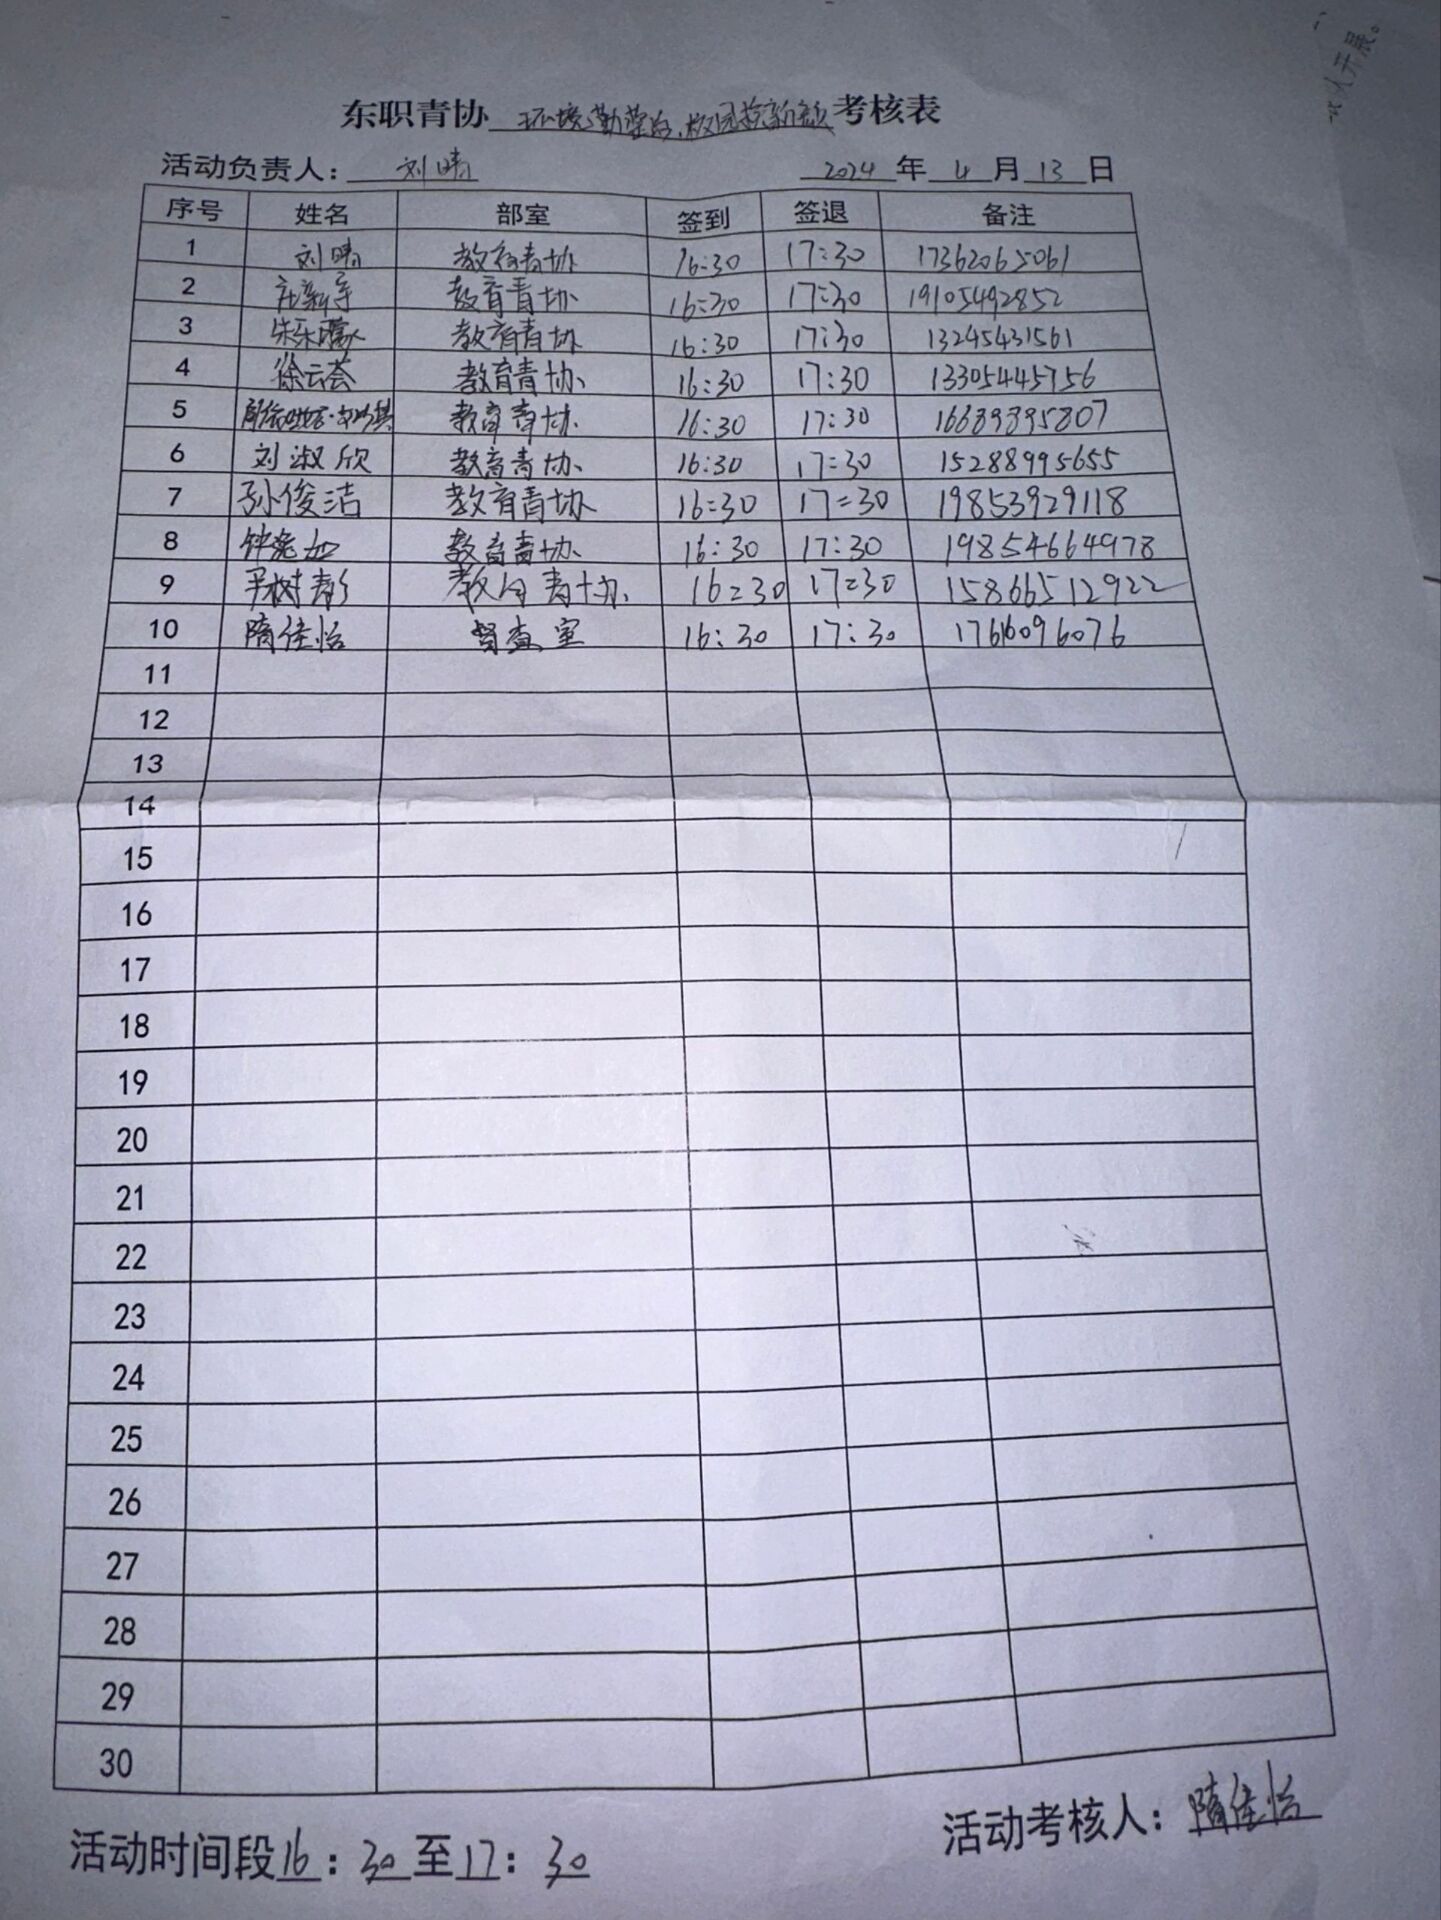 东职青协 环境勤整治,校园换新颜 考核表
活动负责人: 刘晴 2024 年 4 月 13 日
序号 姓名 部室 签到 签退 备注
1 刘晴 教育青协 16:30 17:30 17362065061
2 教育青协 16:30 17:30 19105492852
3 教育青协 16:30 17:30 13245431561
4 徐云荟 教育青协 16:30 17:30 13305445756
5 教育青协 16:30 17:30 16689895807
6 刘淑欣 教育青协 16:30 17:30 15288995655
7 孙俊洁 教育青协 16:30 17:30 19853929118
8 教育青协 16:30 17:30 19854664978
9 教育青协 16:30 17:30 15866512922
10 隋佳怡 督查室 16:30 17:30
11
12
13
14
15
16
17
18
19
20
21
22
23
24
25
26
27
28
29
30
活动考核人: 隋佳怡
活动时间段16:30至17:30